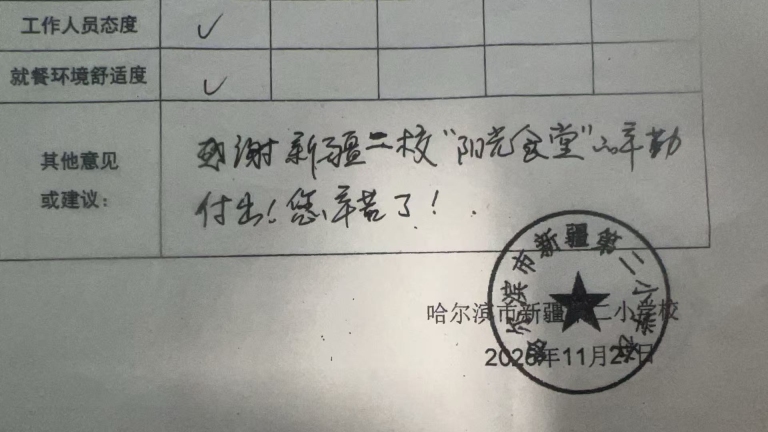 工作人员态度 ✓
就餐环境舒适度 ✓
其他意见
或建议：
感谢新疆二校“阳光食堂”的辛勤
付出！您辛苦了！
哈尔滨市新疆第二小学校
11月2 日
哈尔滨市新疆第二小学校